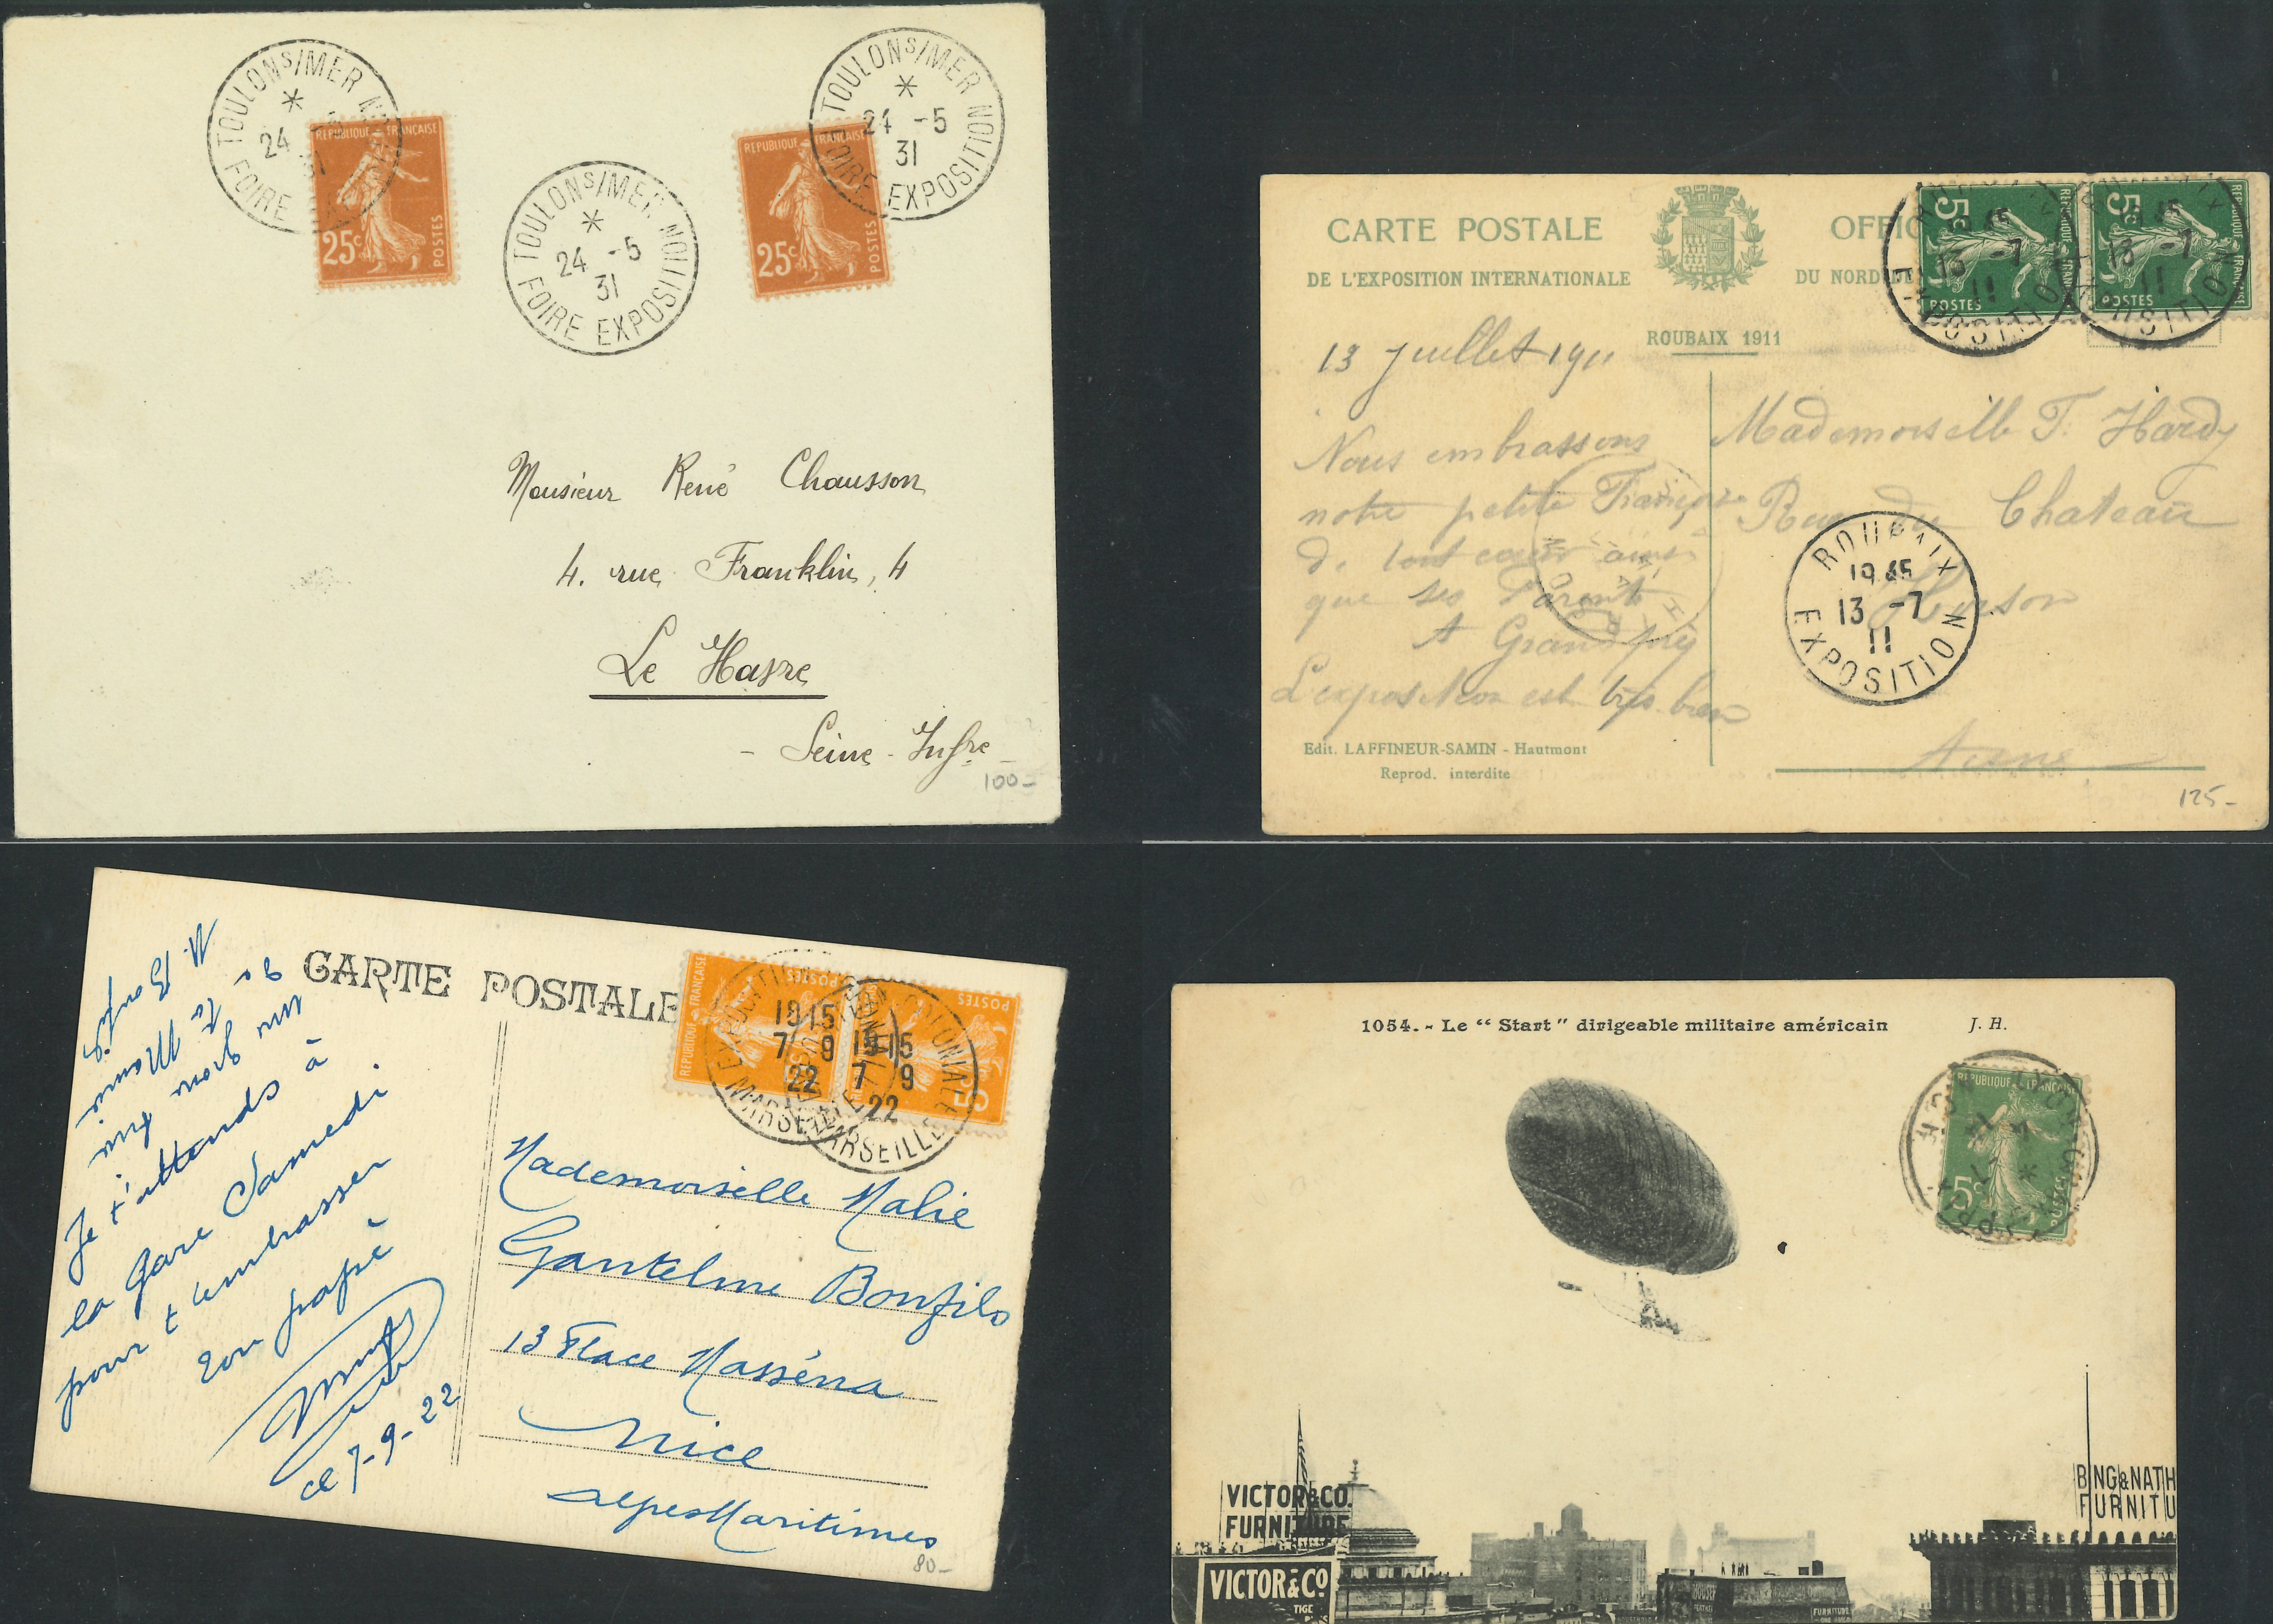 TOULON S/MER
*
24 -5
31
FOIRE EXPOSITION
REPUBLIQUE FRANÇAISE
25c
POSTES
TOULON S/MER
*
24 -5
31
FOIRE EXPOSITION
REPUBLIQUE FRANÇAISE
25c
POSTES
TOULON S/MER
*
24 -5
31
FOIRE EXPOSITION
Monsieur René Chausson
4. rue Franklin, 4
Le Havre
- Seine-Infre
100-
CARTE POSTALE
DE L'EXPOSITION INTERNATIONALE
DU NORD
ROUBAIX 1911
5c
REPUBLIQUE FRANÇAISE
POSTES
5c
REPUBLIQUE FRANÇAISE
POSTES
13 -7
11
EXPOSITION
13 -7
11
13 juillet 1911
Nous embrassons
notre petite Françoise
de tout coeur ainsi
que ses Parents
L'exposition est très bien
Mademoiselle F. Hardy
Rue du Chateau
Hirson
Aisne
ROUBAIX
19 45
13 -7
11
EXPOSITION
Edit. LAFFINEUR-SAMIN - Hautmont
Reprod. interdite
125-
CARTE POSTALE
REPUBLIQUE FRANÇAISE
POSTES
5c
19 15
7 9
22
MARSEILLE
19 15
7 9
22
COLONIALE
MARSEILLE
Je t'attends à
la gare Samedi
pour t'embrasser
ton papa
ce 7-9-22
Mademoiselle Malie
Gantelme Bonfils
13 Place Masséna
Nice
Alpes Maritimes
80-
1054. - Le "Start" dirigeable militaire américain
J. H.
REPUBLIQUE FRANÇAISE
5c
VICTOR & CO.
FURNITURE
VICTOR & CO
BING & NATH
FURNITU
FURNITURE